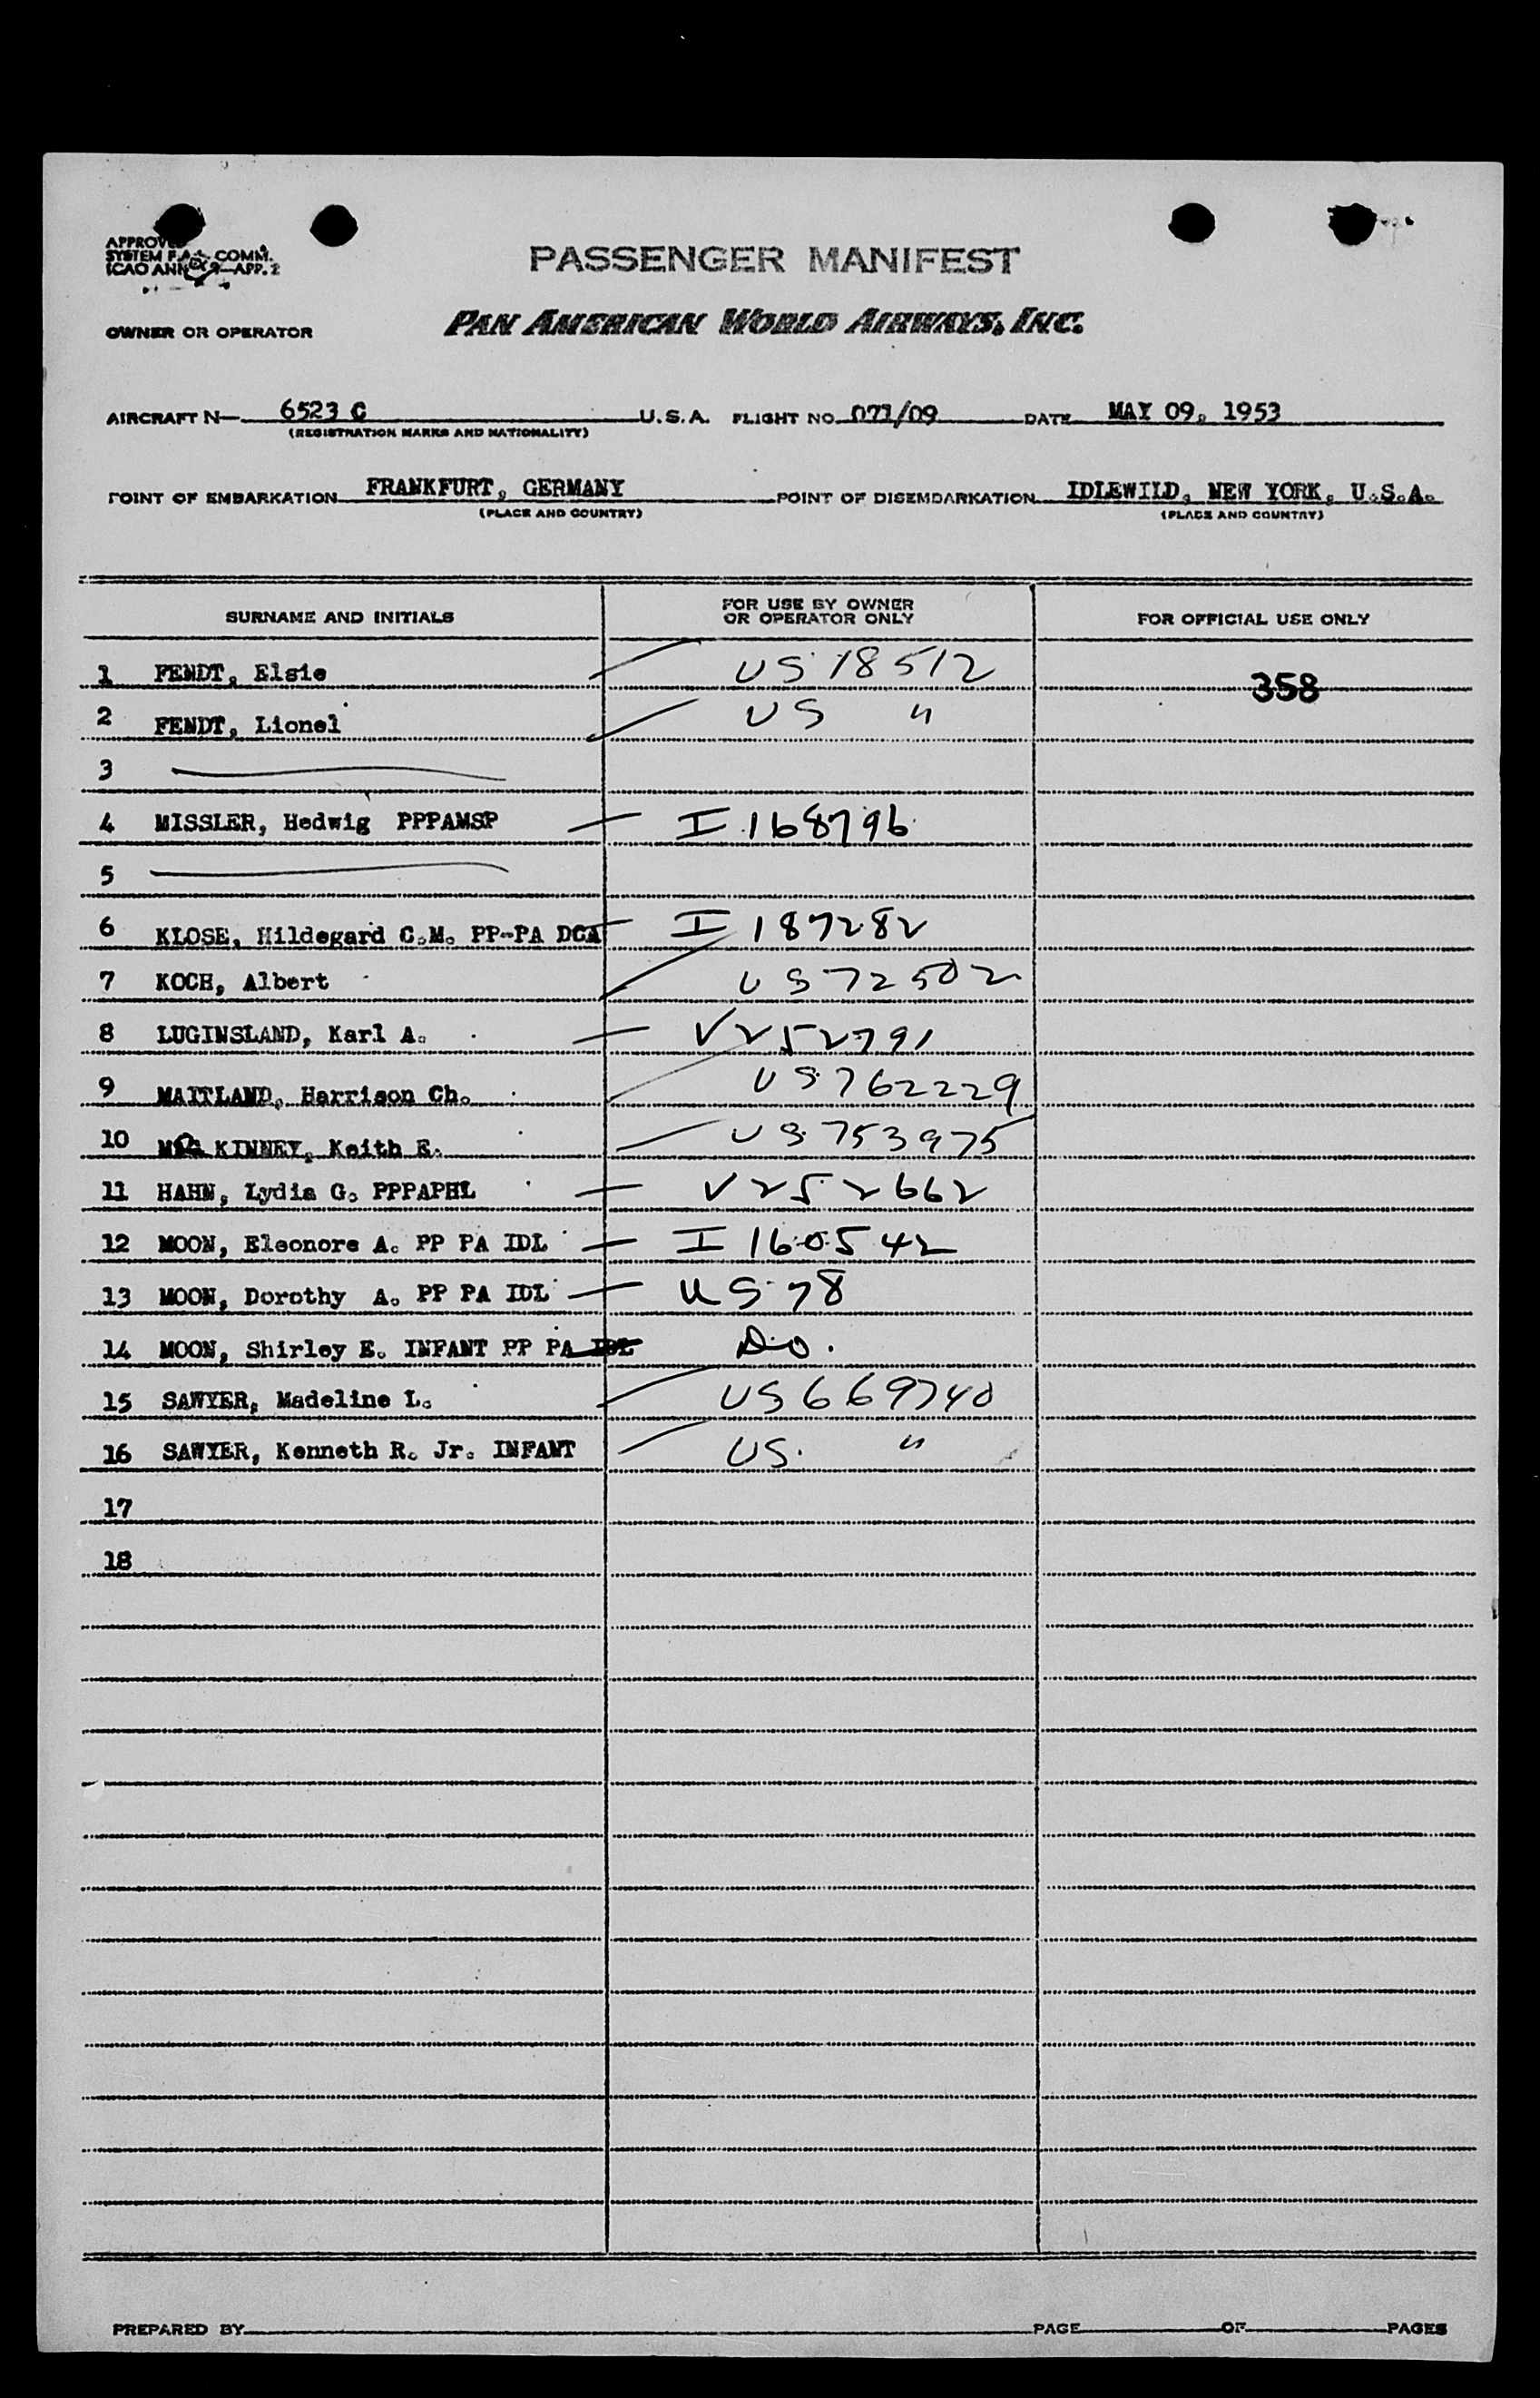 APPROVED
SYSTEM F.A. COMM.
ICAO ANNEX 9—APP. 2
PASSENGER MANIFEST
OWNER OR OPERATOR PAN AMERICAN WORLD AIRWAYS, INC.
AIRCRAFT N— 6523 C U.S.A. FLIGHT NO. 071/09 DATE MAY 09, 1953
(REGISTRATION MARKS AND NATIONALITY)
POINT OF EMBARKATION FRANKFURT, GERMANY POINT OF DISEMBARKATION IDLEWILD, NEW YORK, U.S.A.
(PLACE AND COUNTRY) (PLACE AND COUNTRY)
SURNAME AND INITIALS FOR USE BY OWNER OR OPERATOR ONLY FOR OFFICIAL USE ONLY
1 FENDT, Elsie US 18512 358
2 FENDT, Lionel US "
3
4 MISSLER, Hedwig PPPAMSP I 168796
5
6 KLOSE, Hildegard C.M. PP-PA DCA I 187282
7 KOCH, Albert US 72502
8 LUGINSLAND, Karl A. V252791
9 MAITLAND, Harrison Ch. US 762229
10 Mc KINNEY, Keith E. US 753975
11 HAHN, Lydia G. PPPAPHL V252662
12 MOON, Eleonore A. PP PA IDL I 160542
13 MOON, Dorothy A. PP PA IDL US 78
14 MOON, Shirley E. INFANT PP PA IDL Do.
15 SAWYER, Madeline L. US 669740
16 SAWYER, Kenneth R. Jr. INFANT US. "
17
18
PREPARED BY PAGE OF PAGES